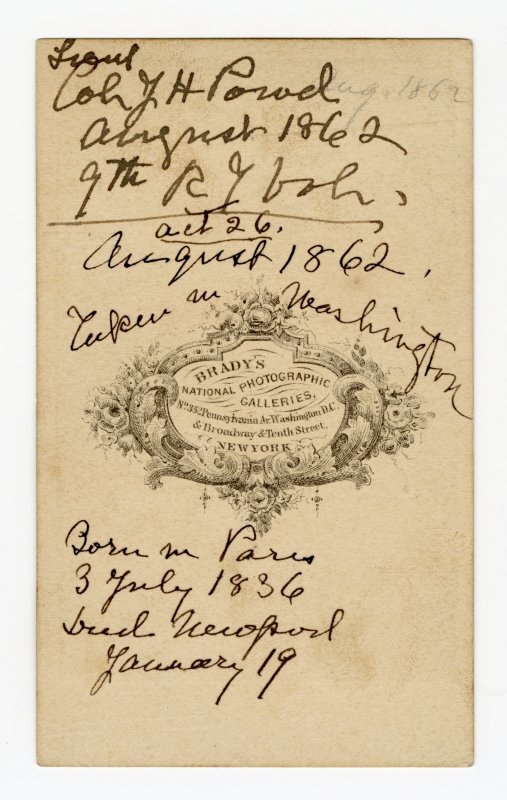 Lieut
Col J H Powel
Aug. 1862
August 1862
9th R I Vols.
aet 26.
August 1862.
Taken in Washington
BRADY'S
NATIONAL PHOTOGRAPHIC
GALLERIES,
No. 352, Pennsylvania Av. Washington D.C.
& Broadway & Tenth Street.
NEW YORK
Born in Paris
3 July 1836
Died Newport
January 19